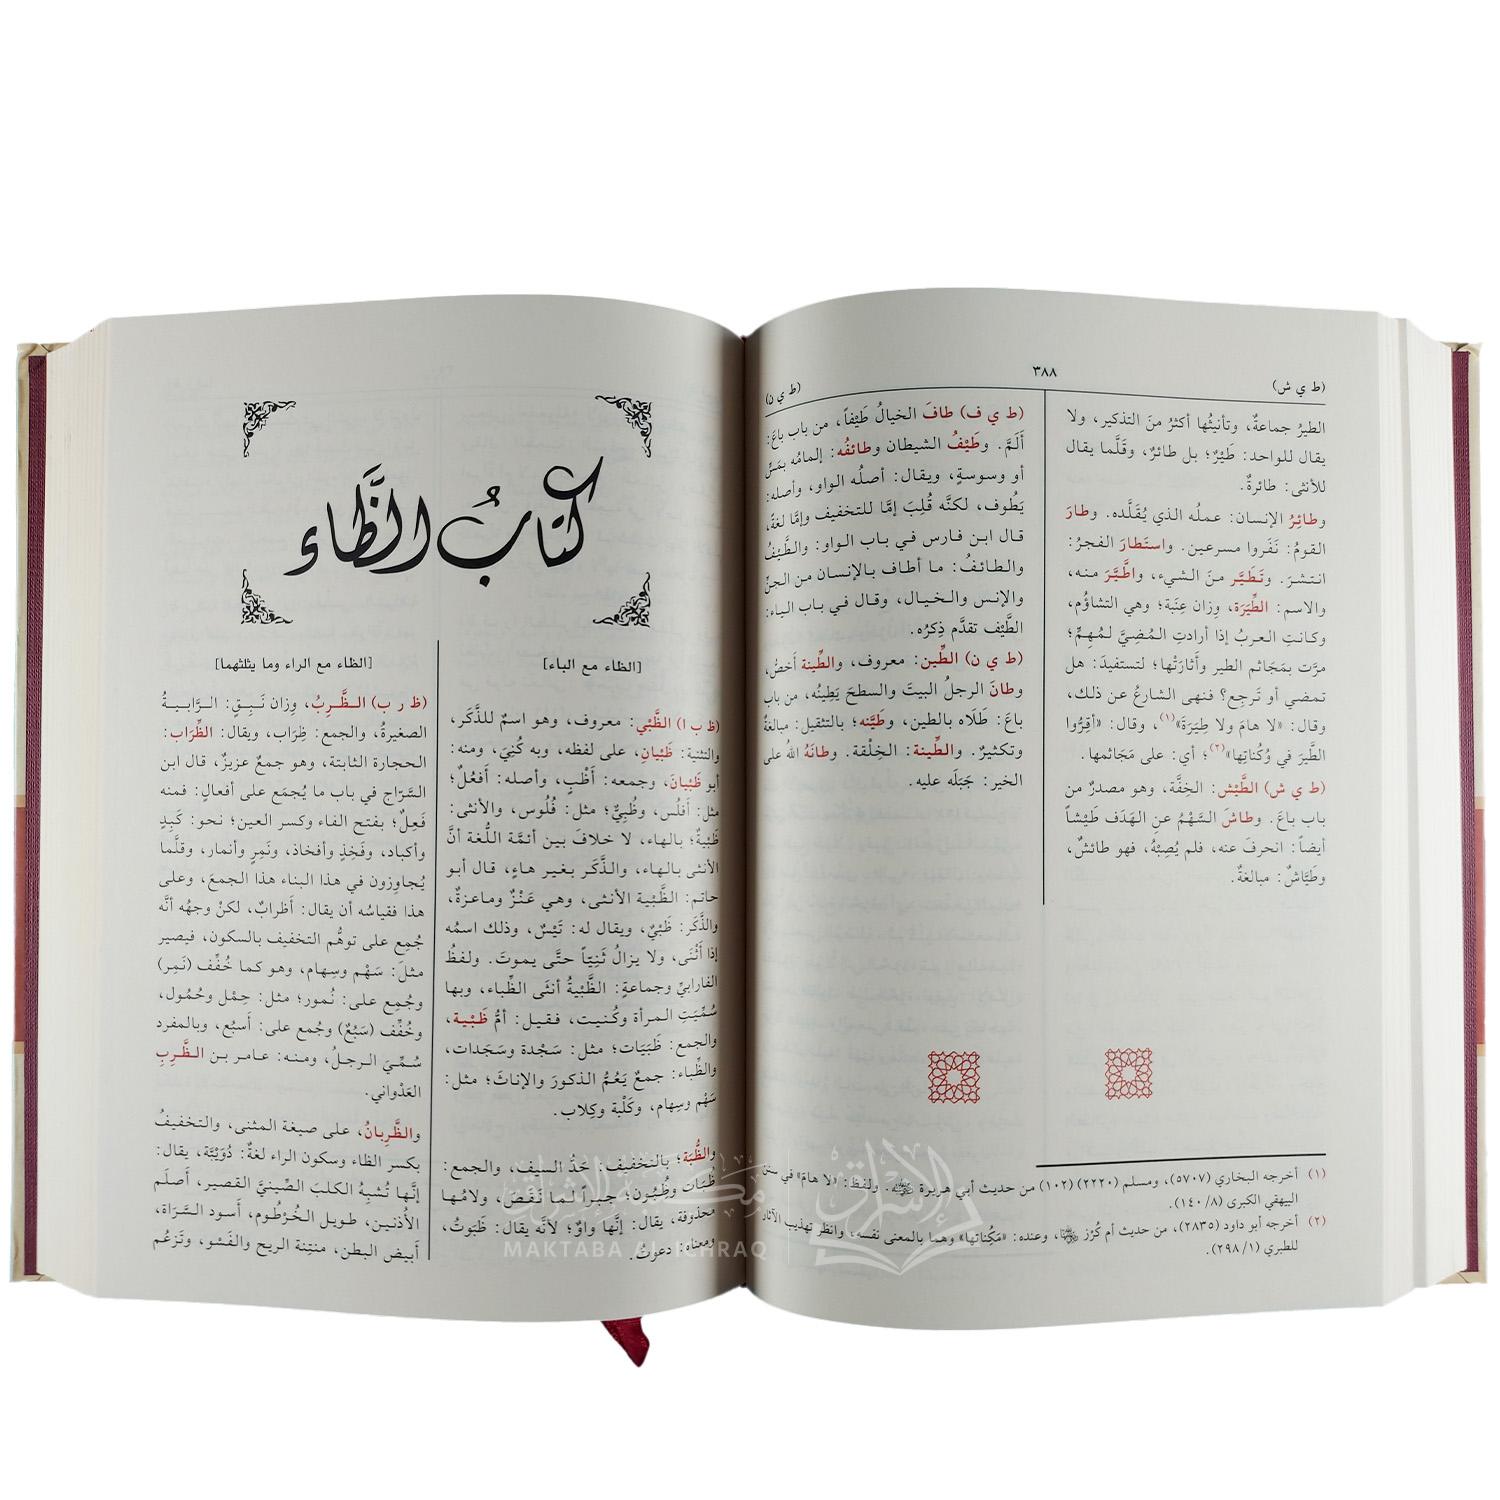 ٣٨٨
(ط ي ش)
(ط ي ن)
الطيرُ جماعةٌ، وتأنيثُها أكثرُ منَ التذكير، ولا
يقال للواحد: طَيْرٌ؛ بل طائرٌ، وقَلَّما يقال
للأنثى: طائرةٌ.
وطائِرُ الإنسان: عملُه الذي يُقَلَّده. وطارَ
القومُ: نَفَروا مسرعين. واستَطارَ الفجرُ:
انتشرَ. وتَطَيَّر منَ الشيء، واطَّيَّرَ منه،
والاسم: الطِّيَرَة، وِزان عِنَبة؛ وهي التشاؤم،
وكانتِ العربُ إذا أرادتِ المُضِيَّ لمُهِمٍّ؛
مرَّت بمَجَاثم الطير وأَثارَتْها؛ لتستفيدَ: هل
تمضي أو تَرجِع؟ فنهى الشارعُ عن ذلك،
وقال: «لا هامَ ولا طِيَرَةَ»(١)، وقال: «أقِرُّوا
الطَّيرَ في وُكُناتِها»(٢)؛ أي: على مَجَاثمها.
(ط ي ش) الطَّيْش: الخِفَّة، وهو مصدرٌ من
باب باعَ. وطاشَ السَّهْمُ عنِ الهَدَف طَيْشاً
أيضاً: انحرفَ عنه، فلم يُصِبْهُ، فهو طائشٌ،
وطَيَّاشٌ: مبالغةٌ.
(ط ي ف) طافَ الخيالُ طَيْفاً، من باب باعَ:
أَلَمَّ. وطَيْفُ الشيطان وطائفُه: إلمامُه بمَسٍّ
أو وسوسةٍ، ويقال: أصلُه الواو، وأصله:
يَطُوف، لكنَّه قُلِبَ إمَّا للتخفيف وإمَّا لغةً،
قال ابن فارس في باب الواو: والطَّيْفُ
والطائفُ: ما أطاف بالإنسان من الجنِّ
والإنس والخيال، وقال في باب الياء:
الطَّيْف تقدَّم ذِكرُه.
(ط ي ن) الطِّين: معروف، والطِّينة أخصُّ،
وطانَ الرجلُ البيتَ والسطحَ يَطِينُه، من باب
باعَ: طَلَاه بالطين، وطَيَّنه؛ بالتثقيل: مبالغةٌ
وتكثيرٌ. والطِّينة: الخِلْقة. وطانَهُ اللهُ على
الخير: جَبَلَه عليه.
(١) أخرجه البخاري (٥٧٠٧)، ومسلم (٢٢٢٠) (١٠٢) من حديث أبي هريرة رضي الله عنه. ولفظ: «لا هامَ» في سنن
البيهقي الكبرى (١٤٠/٨).
(٢) أخرجه أبو داود (٢٨٣٥)، من حديث أم كُرْز رضي الله عنها، وعنده: «مَكِناتها» وهما بالمعنى نفسه، وانظر تهذيب الآثار
للطبري (٢٩٨/١).
كتابُ الظَّاء
[الظاء مع الباء]
(ظ ب ا) الظَّبْي: معروف، وهو اسمٌ للذَّكَر،
والتثنية: ظَبْيانِ، على لفظه، وبه كُنِيَ، ومنه:
أبو ظَبْيانَ، وجمعه: أَظْبٍ، وأصله: أَفعُلٌ؛
مثل: أفلُس، وظُبِيٌّ؛ مثل: فُلُوس، والأنثى:
ظَبْيةٌ؛ بالهاء، لا خلافَ بين أئمَّة اللُّغة أنَّ
الأنثى بالهاء، والذَّكَر بغير هاءٍ، قال أبو
حاتم: الظَّبْية الأنثى، وهي عَنْزٌ وماعزةٌ،
والذَّكَر: ظَبْيٌ، ويقال له: تَيْسٌ، وذلك اسمُه
إذا أَثْنَى، ولا يزالُ ثَنِيّاً حتَّى يموتَ. ولفظُ
الفارابيِّ وجماعةٍ: الظَّبْيةُ أنثَى الظِّباء، وبها
سُمِّيَتِ المرأة وكُنيت، فقيل: أمُّ ظَبْية،
والجمع: ظَبَيَات؛ مثل: سَجْدة وسَجَدات،
والظِّباء: جمعٌ يَعُمُّ الذكورَ والإناثَ؛ مثل:
سَهْم وسِهام، وكَلْبة وكِلاب.
والظُّبَة؛ بالتخفيف: حَدُّ السيف، والجمع:
ظُبَات وظُبُون؛ جبراً لما نَقَصَ، ولامُها
محذوفة، يقال: إنَّها واوٌ؛ لأنَّه يقال: ظَبَوتُ،
ومعناه: دعوتُ.
[الظاء مع الراء وما يثلثهما]
(ظ ر ب) الظَّرِبُ، وِزان نَبِقٍ: الرَّابيةُ
الصغيرةُ، والجمع: ظِرَاب، ويقال: الظِّرَاب:
الحجارة الثابتة، وهو جمعٌ عزيزٌ، قال ابن
السَّرّاج في باب ما يُجمَع على أفعال: فمنه
فَعِلٌ؛ بفتح الفاء وكسر العين؛ نحو: كَبِدٍ
وأكباد، وفَخِذٍ وأفخاذ، ونَمِرٍ وأنمار، وقلَّما
يُجاوِزون في هذا البناء هذا الجمعَ، وعلى
هذا فقياسُه أن يقال: أَظرابٌ، لكنْ وجهُه أنَّه
جُمِع على توهُّم التخفيف بالسكون، فيصير
مثلَ: سَهْم وسِهام، وهو كما خُفِّف (نَمِر)
وجُمِع على: نُمور؛ مثل: حِمْل وحُمُول،
وخُفِّف (سَبُعٌ) وجُمع على: أَسبُع، وبالمفرد
سُمِّيَ الرجلُ، ومنه: عامر بن الظَّرِبِ
العَدْواني.
والظَّرِبانُ، على صيغة المثنى، والتخفيفُ
بكسر الظاء وسكون الراء لغةٌ: دُوَيْبَّة، يقال:
إنَّها تُشبِهُ الكلبَ الصِّينيَّ القصير، أَصلَم
الأُذنين، طويل الخُرْطوم، أَسود السَّرَاة،
أبيض البطن، منتِنة الريح والفَسْو، وتَزعُم
مكتبة الإشراق
الإشراق
MAKTABA AL-ICHRAQ